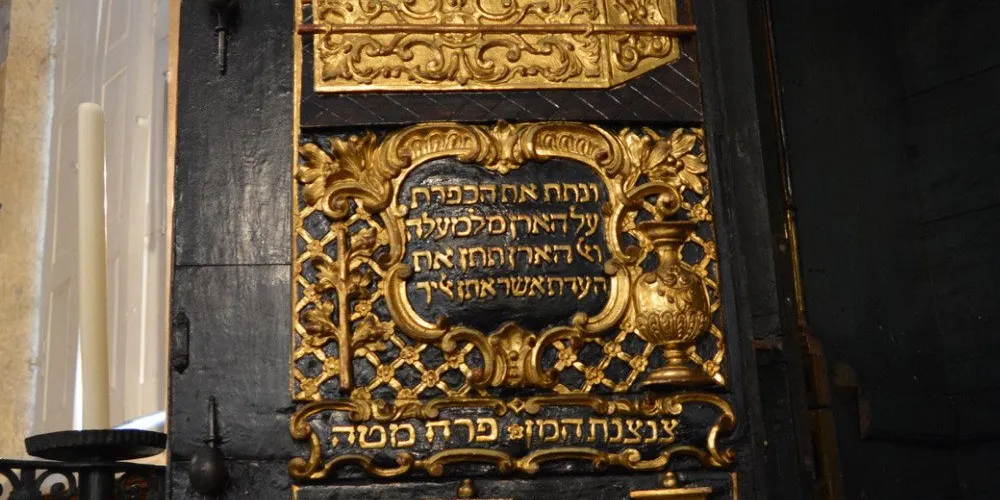 ונתת את הכפרת
על הארן מלמעלה
וﭏ הארן תתן את
העדת אשר אתן ﭏיך
צנצנת המן פרח מטה